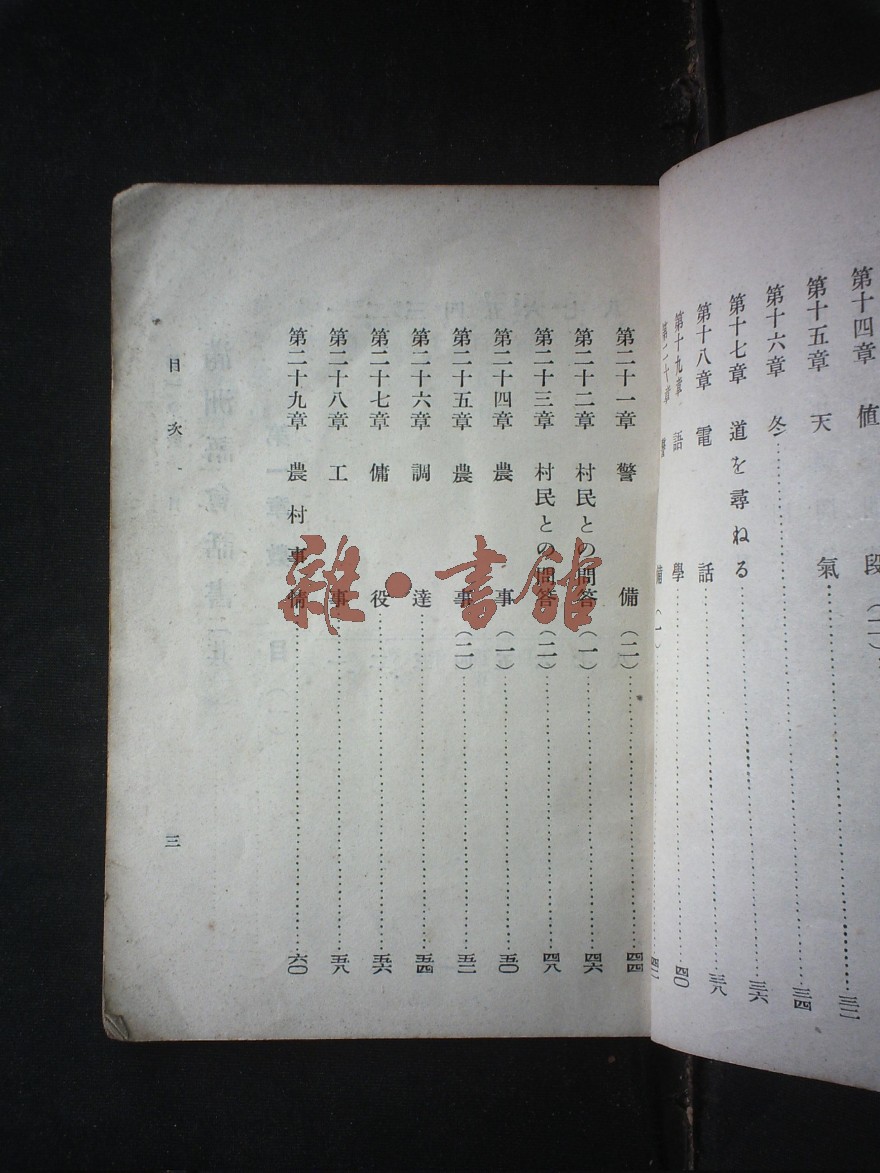 第十四章 値段(二)……三二
第十五章 天氣……三四
第十六章 冬……三六
第十七章 道を尋ねる
第十八章 電話……三八
第十九章 語學……四〇
第二十章 警備(一)……四二
第二十一章 警備(二)……四四
第二十二章 村民との問答(一)……四六
第二十三章 村民との問答(二)……四八
第二十四章 農事(一)……五〇
第二十五章 農事(二)……五二
第二十六章 調達……五四
第二十七章 傭役……五六
第二十八章 工事……五八
第二十九章 農村事情……六〇
目次
三
雜·書館